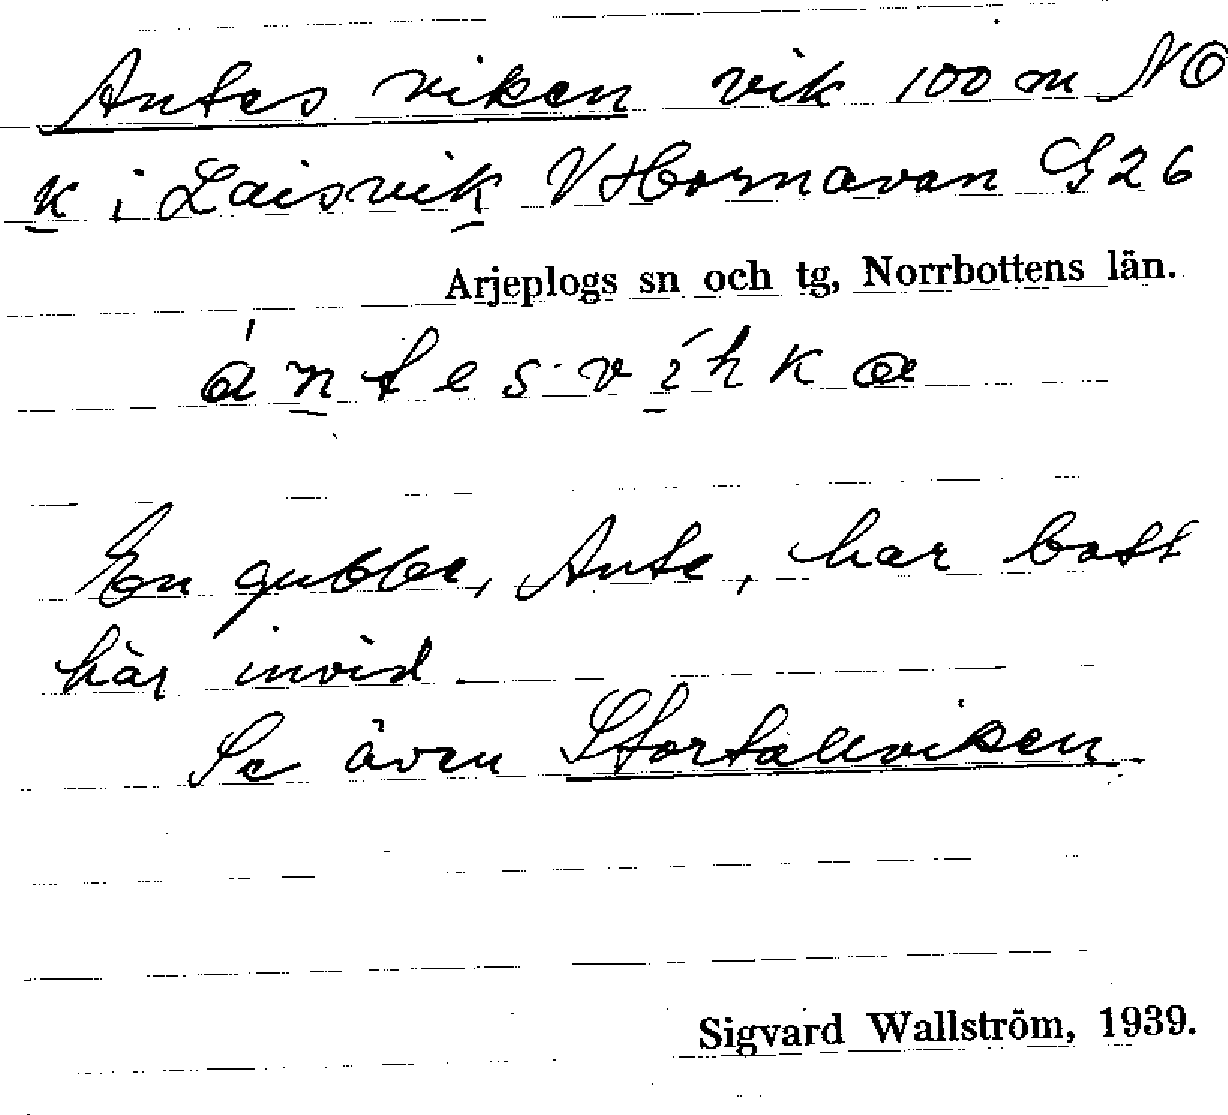 Antesviken vik 100 m NO
k i Laisvik V Hornavan G26
Arjeplogs sn och tg, Norrbottens län.
ántesvíhkɑ
En gubbe, Ante, har bott
här invid
Se även Stortallviken
Sigvard Wallström, 1939.